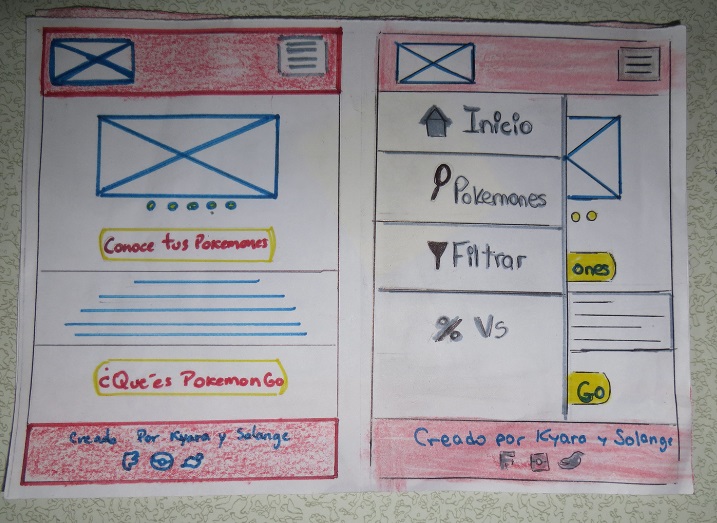 Conoce tus Pokemones
¿Que es Pokemon Go
Creado Por Kyara y Solange
Inicio
Pokemones
Filtrar
% Vs
ones
Go
Creado por Kyara y Solange